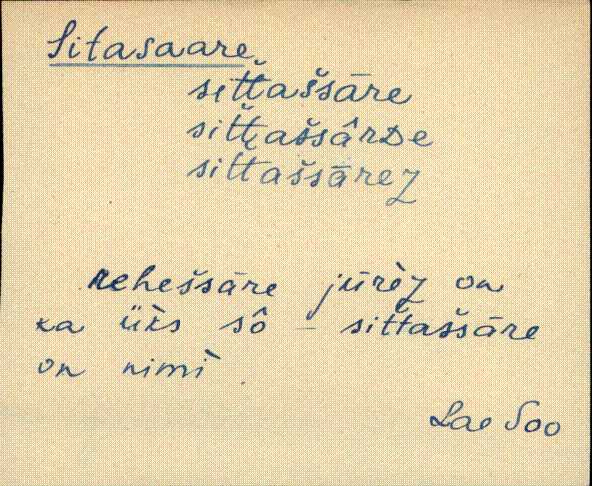 Sitasaare
sitt̆aššāre
sitt̆ašsârDe
sittaššārez
rehešsāre jūrèz on
ka ük̀s sô – sitt̆ašsāre
on nimì.
Lae Soo